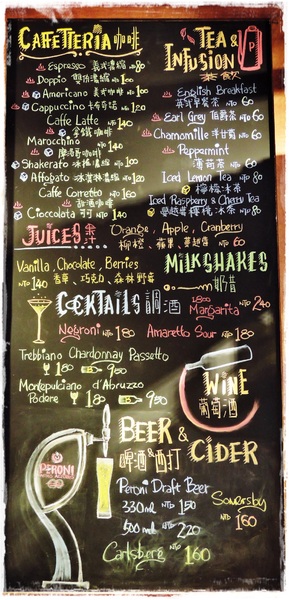 CAFFETTERIA 咖啡
Espresso 義式濃縮 NTD 80
Doppio 雙份濃縮 NTD 100
Americano 美式咖啡 NTD 100
Cappuccino 卡布奇諾 NTD 120
Caffe Latte
拿鐵咖啡 NTD 140
Marocchino
摩洛哥咖啡 NTD 140
Shakerato 冰搖濃縮 NTD 100
Affogato 冰淇淋濃縮 NTD 120
Caffe Corretto NTD 160
甜酒咖啡
Cioccolata 可可 NTD 140
TEA &
INFUSION
茶飲
English Breakfast
英式早餐茶 NTD 60
Earl Grey 伯爵茶 NTD 60
Chamomille 洋甘菊 NTD 60
Peppermint
薄荷茶 NTD 60
Iced Lemon Tea NTD 80
檸檬冰茶
Iced Raspberry & Cherry Tea
櫻桃冰茶 NTD 80
JUICES 果汁
Orange, Apple, Cranberry
柳橙、蘋果、蔓越莓 NTD 60
Vanilla, Chocolate, Berries
NTD 140 香草、巧克力、森林野莓
MILKSHAKES
奶昔
COCKTAILS 調酒
Margarita NTD 240
Negroni NTD 180
Amaretto Sour NTD 180
Trebbiano Chardonnay Passetto
180 950
Montepulciano d'Abruzzo
Podere 180 950
WINE
葡萄酒
BEER &
CIDER
啤酒&西打
PERONI
Peroni Draft Beer
330ml NTD 150
500ml NTD 220
Somersby
NTD 160
Carlsberg NTD 160